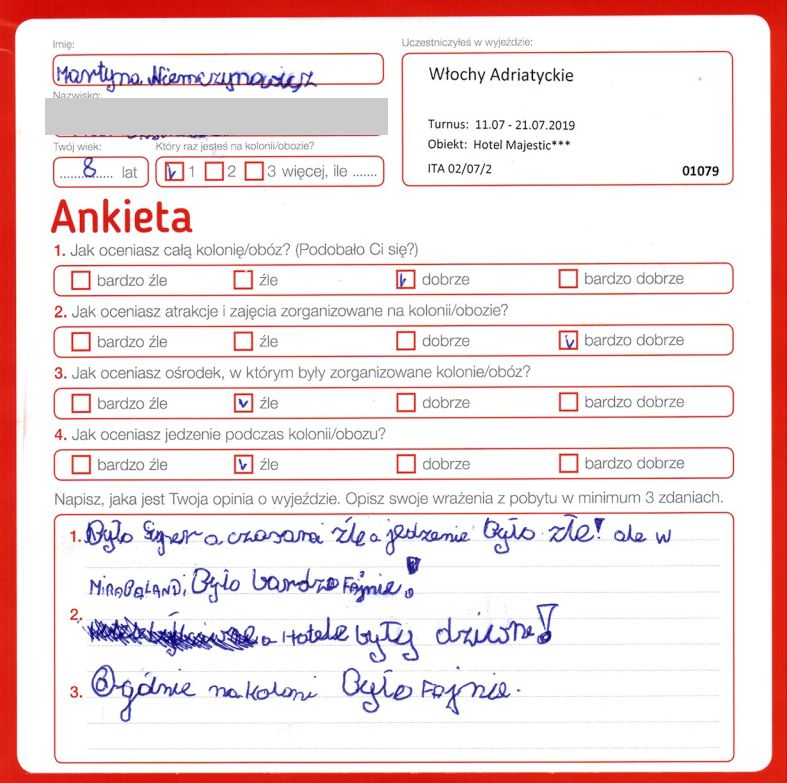 Imię:
Uczestniczyłeś w wyjeździe:
Martyna Niemczynowicz
Włochy Adriatyckie
Nazwisko:
Turnus: 11.07 - 21.07.2019
Obiekt: Hotel Majestic***
ITA 02/07/2
01079
Twój wiek:
Który raz jesteś na kolonii/obozie?
8 lat
1 2 3 więcej, ile .......
Ankieta
1. Jak oceniasz całą kolonię/obóz? (Podobało Ci się?)
bardzo źle źle dobrze bardzo dobrze
2. Jak oceniasz atrakcje i zajęcia zorganizowane na kolonii/obozie?
bardzo źle źle dobrze bardzo dobrze
3. Jak oceniasz ośrodek, w którym były zorganizowane kolonie/obóz?
bardzo źle źle dobrze bardzo dobrze
4. Jak oceniasz jedzenie podczas kolonii/obozu?
bardzo źle źle dobrze bardzo dobrze
Napisz, jaka jest Twoja opinia o wyjeździe. Opisz swoje wrażenia z pobytu w minimum 3 zdaniach.
1. Było super a czasami źle a jedzenie było złe! ale w
MiRABALAND, Było bardzo FAjnie!
2. a Hotele były dziwne!
3. Ogólnie na koloni Było FAjnie.